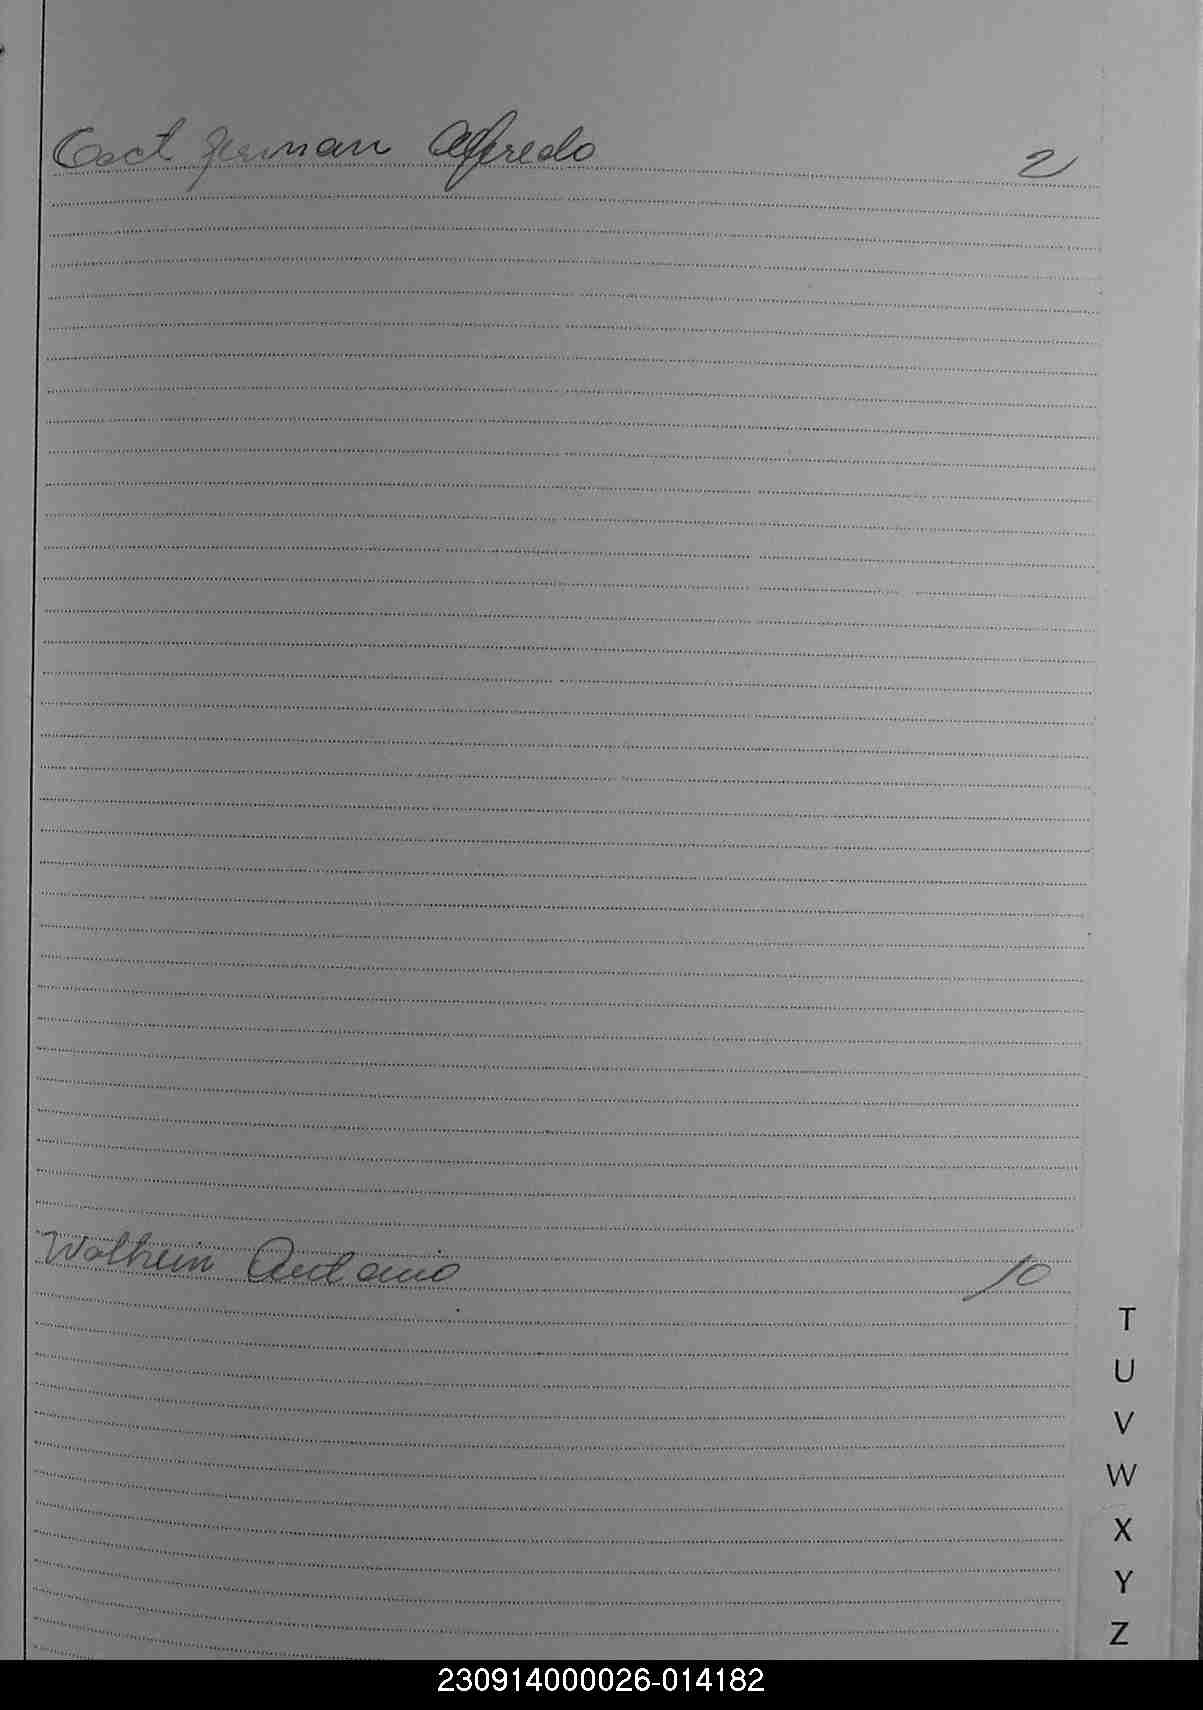 German Alfredo 2
Wolhein Antonio 10
T
U
V
W
X
Y
Z
230914000026-014182